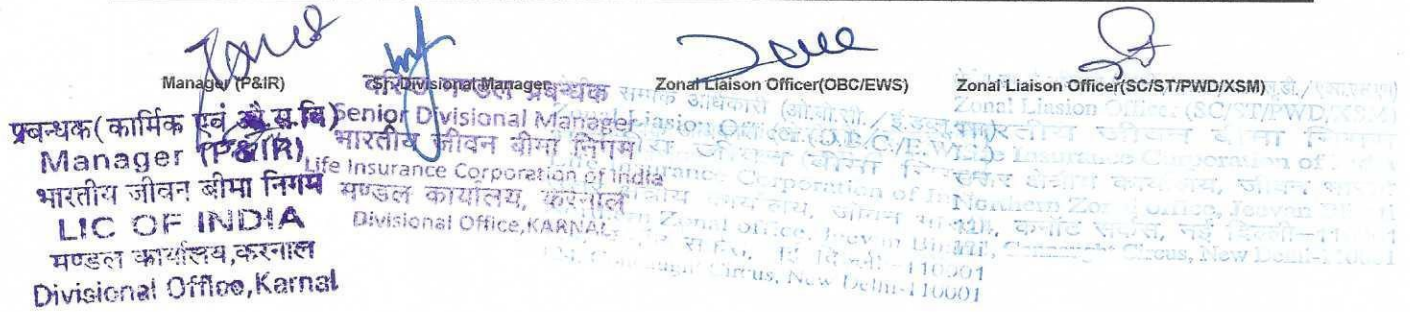 Manager (P&IR)
Sr. Divisional Manager
Zonal Liaison Officer(OBC/EWS)
Zonal Liaison Officer(SC/ST/PWD/XSM)
प्रबन्धक( कार्मिक एवं औ.स.वि)
Manager (P&IR)
भारतीय जीवन बीमा निगम
LIC OF INDIA
मण्डल कार्यालय,करनाल
Divisional Office,Karnal
प्रबन्धक
Senior Divisional Manager
भारतीय जीवन बीमा निगम
Life Insurance Corporation of India
मण्डल कार्यालय, करनाल
Divisional Office,KARNAL
सम्पर्क अधिकारी (ओ.बी.सी. / ई.डब्ल्यू.एस)
Liasion Officer (O.B.C./E.W.
जीवन बीमा
Insurance Corporation of In
Zonal office, Jeevan
110001
Circus, New Delhi-110001
Zonal Liasion Officer (SC/ST/PWD/XSM)
भारतीय जीवन बीमा निगम
Life Insurance Corporation of
क्षेत्रीय कार्यालय, जीवन भारती
Northern Zonal Office, Jeevan
कनॉट सर्कस, नई दिल्ली-110001
Connaught Circus, New Delhi-110001